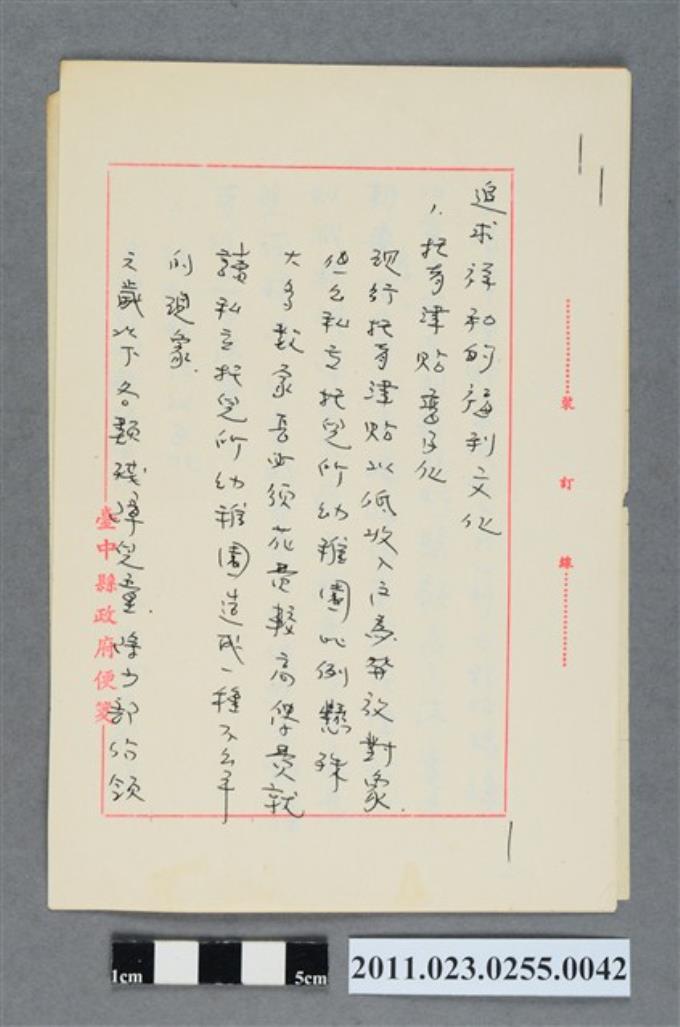 裝 訂 線
追求祥和的福利文化
1. 托育津貼普及化
現行托育津貼以低收入戶為發放對象.
但公私立托兒所幼稚園比例懸殊
大多數家長必須花費較高學費就
讀私立托兒所幼稚園造成一種不公平
的現象.
六歲以下各類殘障兒童.除少部份領
臺中縣政府便箋
1cm 5cm
2011.023.0255.0042